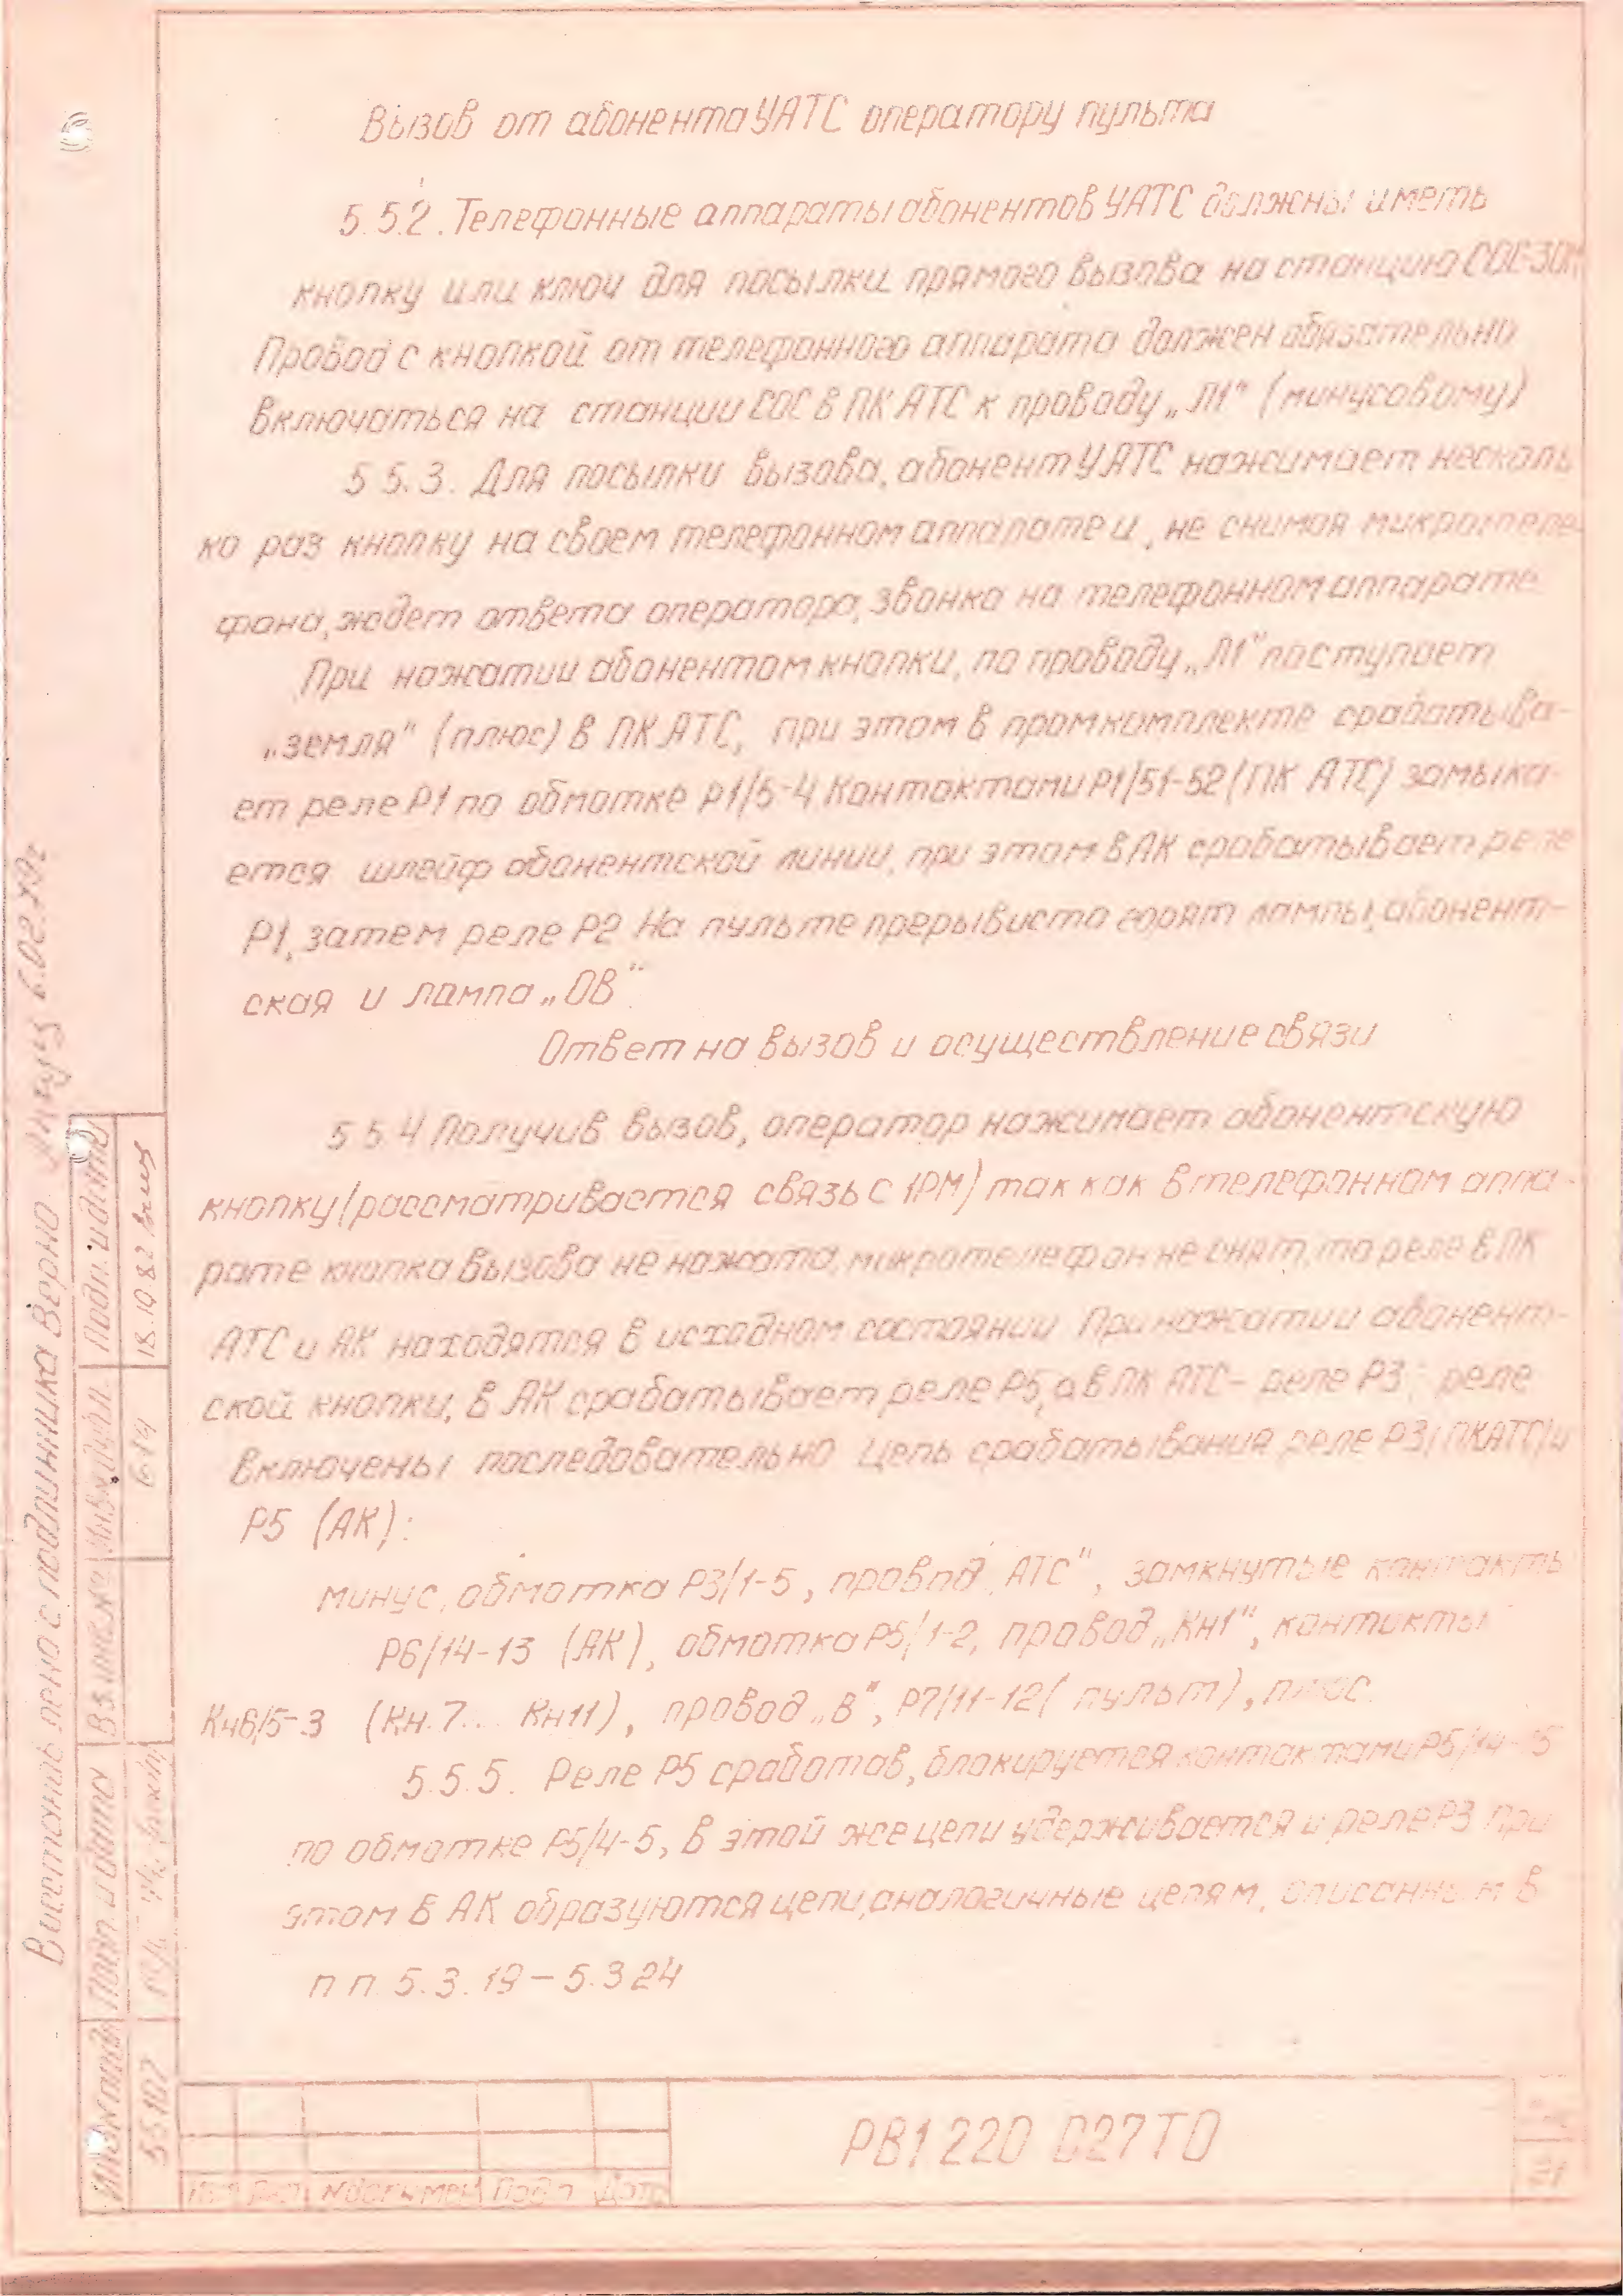 Вызов от абонента УАТС оператору пульта
5.5.2. Телефонные аппараты абонентов УАТС должны иметь
кнопку или ключ для посылки прямого вызова на станцию СОС-30М
Провод с кнопкой от телефонного аппарата должен обязательно
включаться на станции СОС в ПК АТС к проводу „Л1" (минусовому)
5 5.3. Для посылки вызова, абонент УАТС нажимает несколь
ко раз кнопку на своем телефонном аппарате и, не снимая микротеле
фона, ждет ответа оператора, звонка на телефонном аппарате
При нажатии абонентом кнопки, по проводу „Л1" поступает
„земля" (плюс) в ПК АТС, при этом в промкомплекте срабатыва-
ет реле Р1 по обмотке Р1/5-4 Контактами Р1/51-52 (ПК АТС) замыка-
ется шлейф абонентской линии, при этом в АК срабатывает реле
Р1, затем реле Р2 На пульте прерывисто горят лампы, абонент-
ская и лампа „ОВ"
Ответ на вызов и осуществление связи
5 5.4 Получив вызов, оператор нажимает абонентскую
кнопку (рассматривается связь с 1РМ) так как в телефонном аппа-
рате кнопка вызова не нажата, микротелефон не снят, то реле в ПК
АТС и АК находятся в исходном состоянии При нажатии абонент-
ской кнопки, в АК срабатывает реле Р5, а в ПК АТС - реле Р3; реле
включены последовательно Цепь срабатывания реле Р3 (ПКАТС) и
Р5 (АК):
минус, обмотка Р3/1-5, провод „АТС", замкнутые контакты
Р6/14-13 (АК), обмотка Р5/1-2, провод „Кн1", контакты
Кн6/5-3 (Кн.7... Кн11), провод „В", Р7/11-12 (пульт), плюс.
5.5.5. Реле Р5 сработав, блокируется контактами Р5/14-15
по обмотке Р5/4-5, в этой же цепи удерживается и реле Р3 При
этом в АК образуются цепи, аналогичные цепям, описанным в
п п. 5.3.19 – 5.3 24
РВ1 220 027 ТО
Лист № докумен Подп Дата
Инв № подл Подп. и дата Вз. инв. № Инв № дубл. Подп. и дата
55107 614 18.10.82
подлинника Верно 6.02.79г